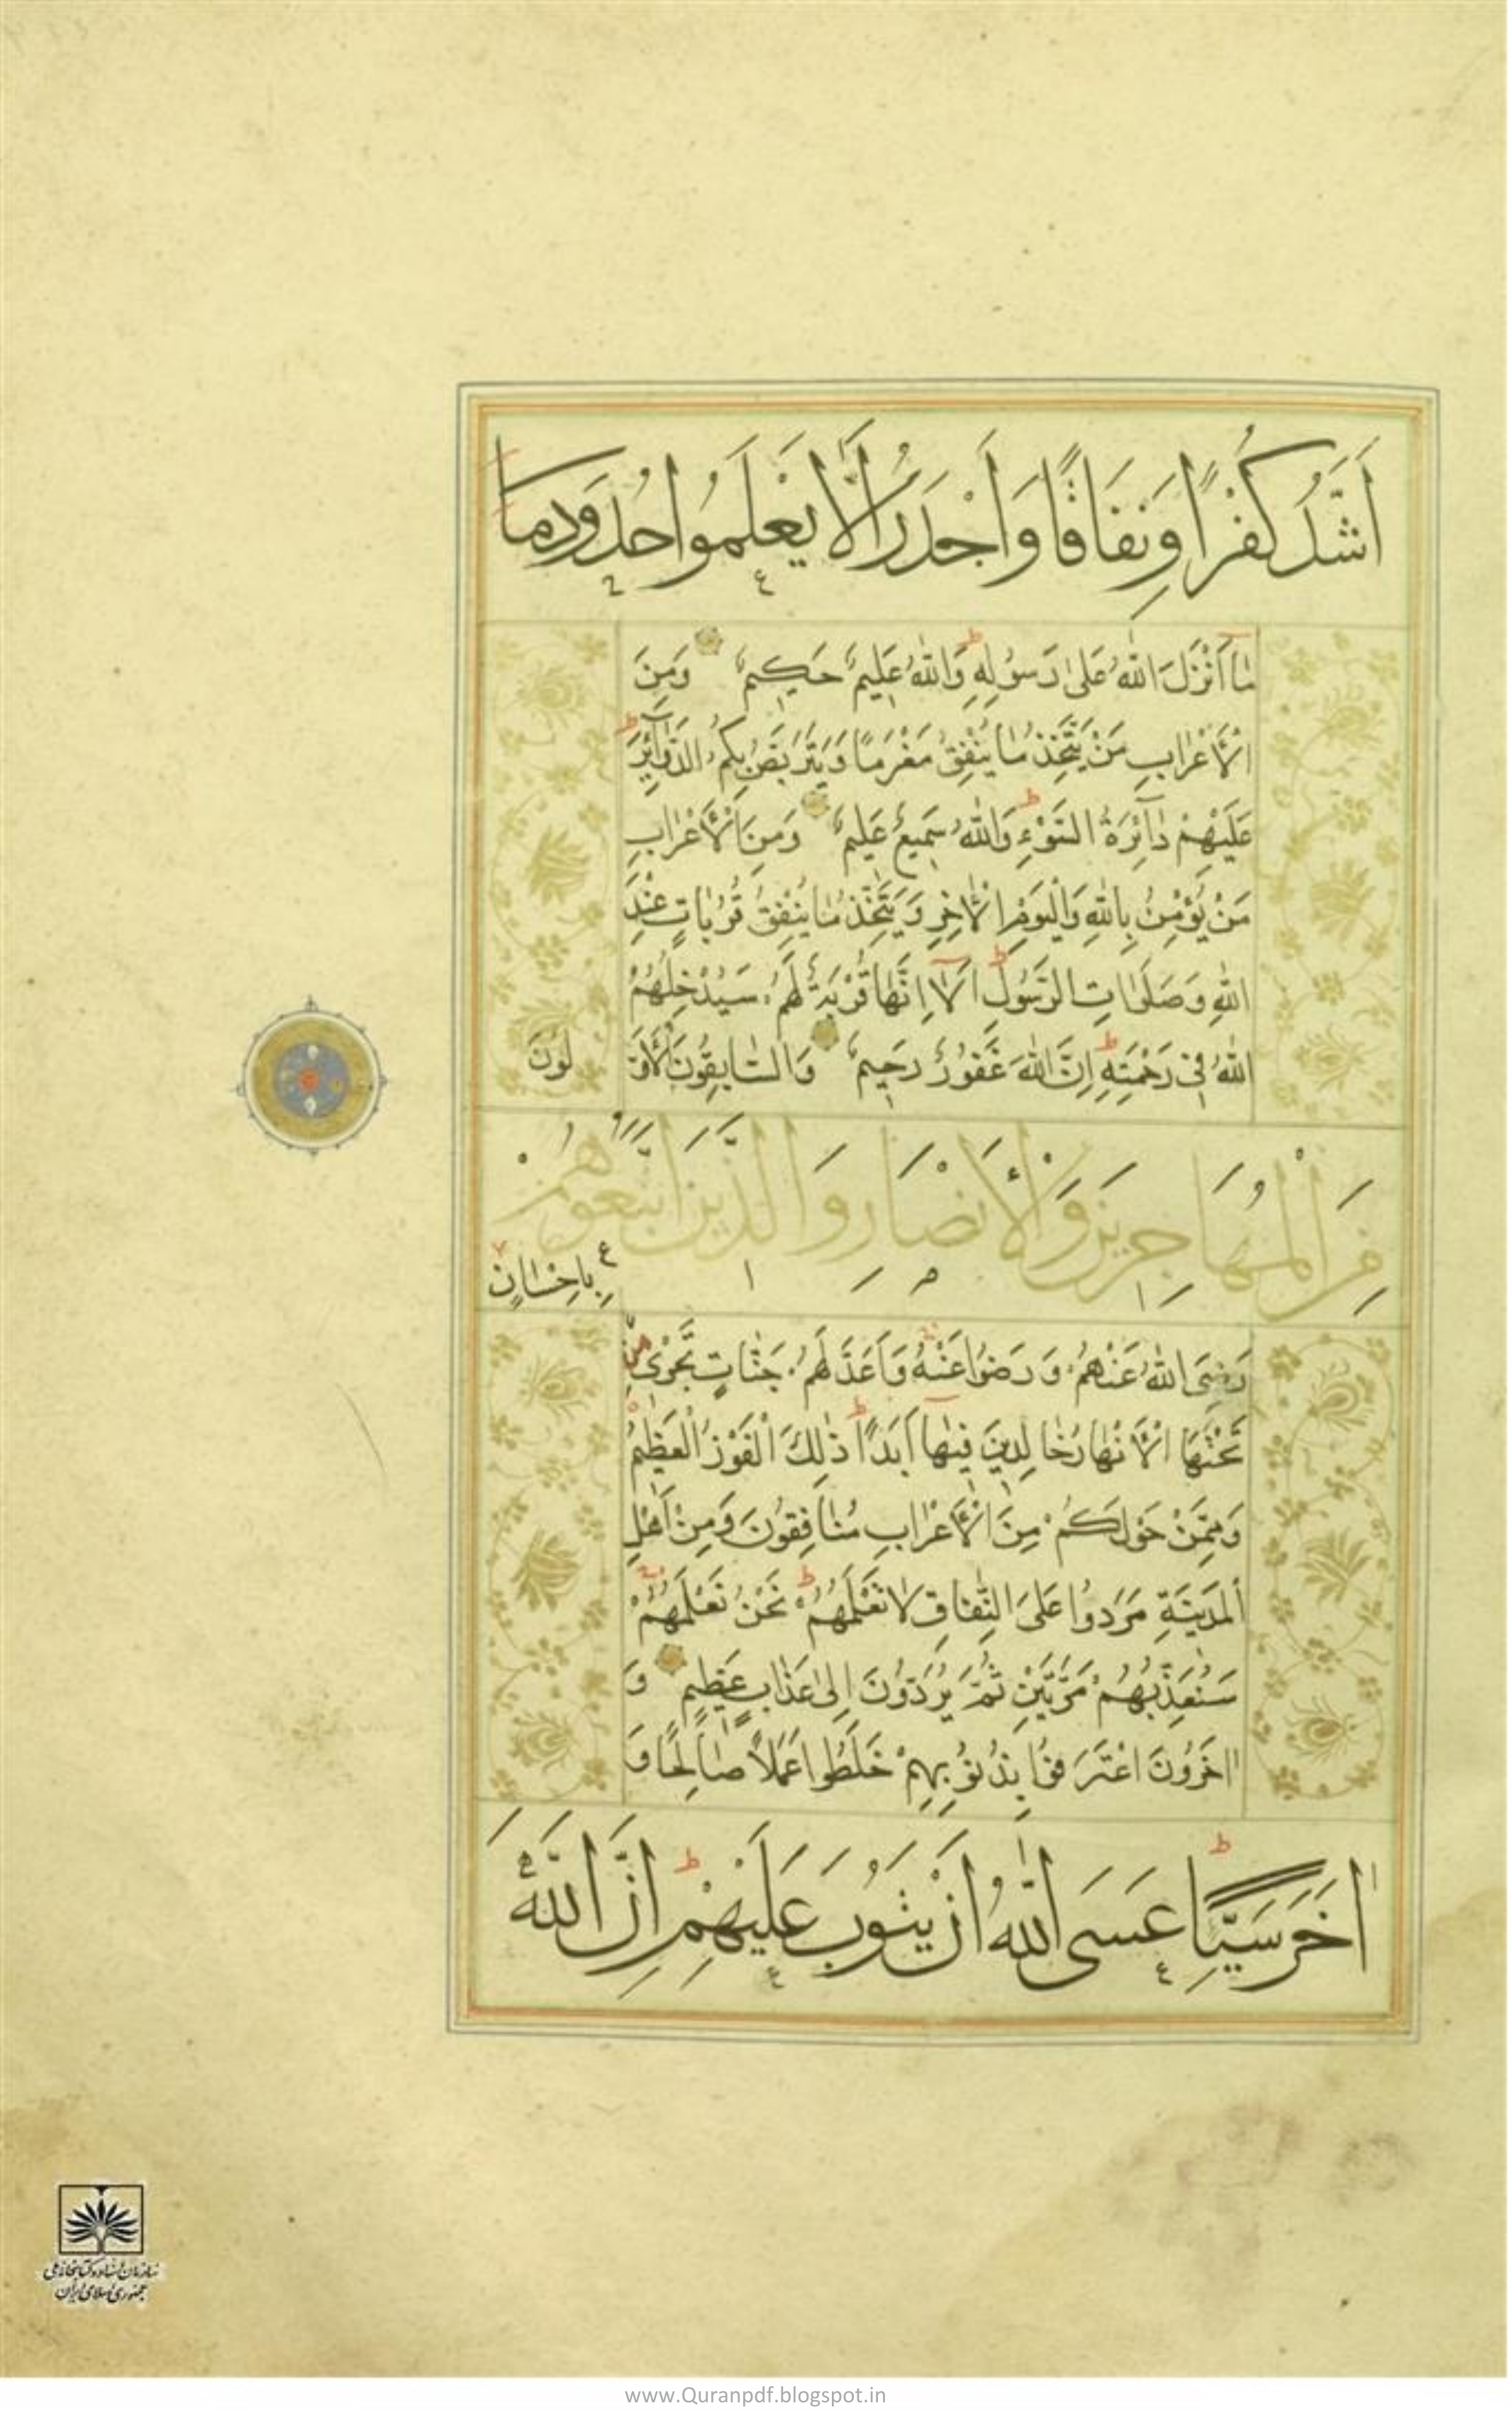 اَشَدُّ كُفْرًا وَنِفَاقًا وَاَجْدَرُ اَلَّا يَعْلَمُوا حُدُودَ مَا
مٰا اَنْزَلَ اللّٰهُ عَلىٰ رَسُولِهِ وَاللّٰهُ عَلِيمٌ حَكِيمٌ وَمِنَ
الْاَعْرٰابِ مَنْ يَتَّخِذُ مٰا يُنْفِقُ مَغْرَمًا وَيَتَرَبَّصُ بِكُمُ الدَّوٰآئِرَ
عَلَيْهِمْ دٰآئِرَةُ السَّوْءِ وَاللّٰهُ سَمِيعٌ عَلِيمٌ وَمِنَ الْاَعْرٰابِ
مَنْ يُؤْمِنُ بِاللّٰهِ وَالْيَوْمِ الْاٰخِرِ وَيَتَّخِذُ مٰا يُنْفِقُ قُرُبٰاتٍ عِنْدَ
اللّٰهِ وَصَلَوٰاتِ الرَّسُولِ اَلٰا اِنَّهٰا قُرْبَةٌ لَهُمْ سَيُدْخِلُهُمُ
اللّٰهُ فِي رَحْمَتِهِ اِنَّ اللّٰهَ غَفُورٌ رَحِيمٌ وَالسّٰابِقُونَ الْاَوَّ لُونَ
مِنَ الْمُهَاجِرِينَ وَالْاَنْصَارِ وَالَّذِينَ اتَّبَعُوهُمْ
بِاِحْسٰانٍ
رَضِيَ اللّٰهُ عَنْهُمْ وَرَضُوا عَنْهُ وَاَعَدَّ لَهُمْ جَنّٰاتٍ تَجْرِي مِنْ
تَحْتِهَا الْاَنْهٰارُ خٰالِدِينَ فِيهٰا اَبَدًا ذٰلِكَ الْفَوْزُ الْعَظِيمُ
وَمِمَّنْ حَوْلَكُمْ مِنَ الْاَعْرٰابِ مُنٰافِقُونَ وَمِنْ اَهْلِ
الْمَدِينَةِ مَرَدُوا عَلَى النِّفٰاقِ لٰا تَعْلَمُهُمْ نَحْنُ نَعْلَمُهُمْ
سَنُعَذِّبُهُمْ مَرَّتَيْنِ ثُمَّ يُرَدُّونَ اِلىٰ عَذٰابٍ عَظِيمٍ وَ
اٰخَرُونَ اعْتَرَفُوا بِذُنُوبِهِمْ خَلَطُوا عَمَلًا صٰالِحًا وَ
اٰخَرَ سَيِّئًا عَسَى اللّٰهُ اَنْ يَتُوبَ عَلَيْهِمْ اِنَّ اللّٰهَ
سازمان اسناد و کتابخانه ملی
جمهوری اسلامی ایران
www.Quranpdf.blogspot.in